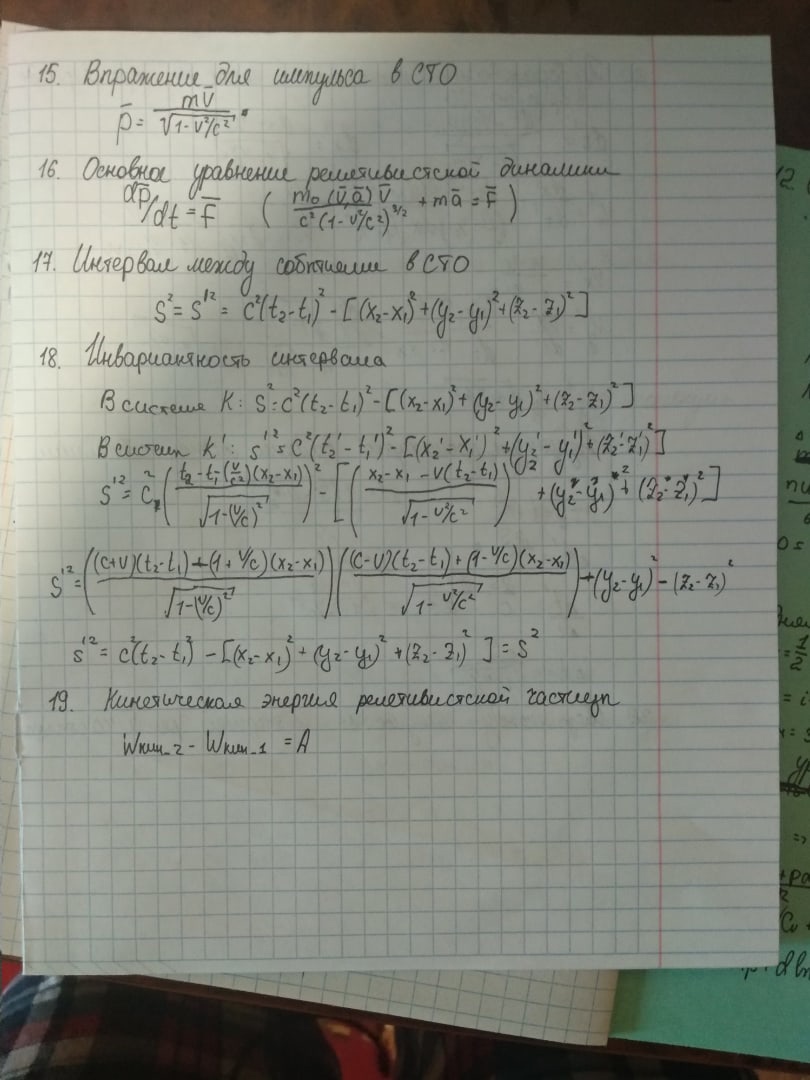 15. Выражение для импульса в СТО
p̄ = mv̄ / √(1-v²/c²)
16. Основное уравнение релетивистской динамики
dp̄/dt = F̄ ( m₀(v̄,ā)v̄ / c²(1-v²/c²)^3/2 + mā = F̄ )
17. Интервал между событиями в СТО
S² = S'² = c²(t₂-t₁)² - [(x₂-x₁)²+(y₂-y₁)²+(z₂-z₁)²]
18. Инвариантность интервала
В системе K: S² = c²(t₂-t₁)² - [(x₂-x₁)²+(y₂-y₁)²+(z₂-z₁)²]
В систем K': S'² = c²(t₂'-t₁')² - [(x₂'-x₁')²+(y₂'-y₁')²+(z₂'-z₁')²]
S'² = c² ( t₂-t₁-(v/c²)(x₂-x₁) / √(1-(v/c)²) )² - [ ( x₂-x₁-v(t₂-t₁) / √(1-v²/c²) )² + (y₂-y₁)² + (z₂-z₁)² ]
S'² = ( (c+v)(t₂-t₁)-(1+v/c)(x₂-x₁) / √(1-(v/c)²) ) ( (c-v)(t₂-t₁)+(1-v/c)(x₂-x₁) / √(1-v²/c²) ) +(y₂-y₁)² - (z₂-z₁)²
S'² = c²(t₂-t₁)² - [(x₂-x₁)²+(y₂-y₁)²+(z₂-z₁)²] = S²
19. Кинетическая энергия релетивистской частицы
Wкин_2 - Wкин_1 = A